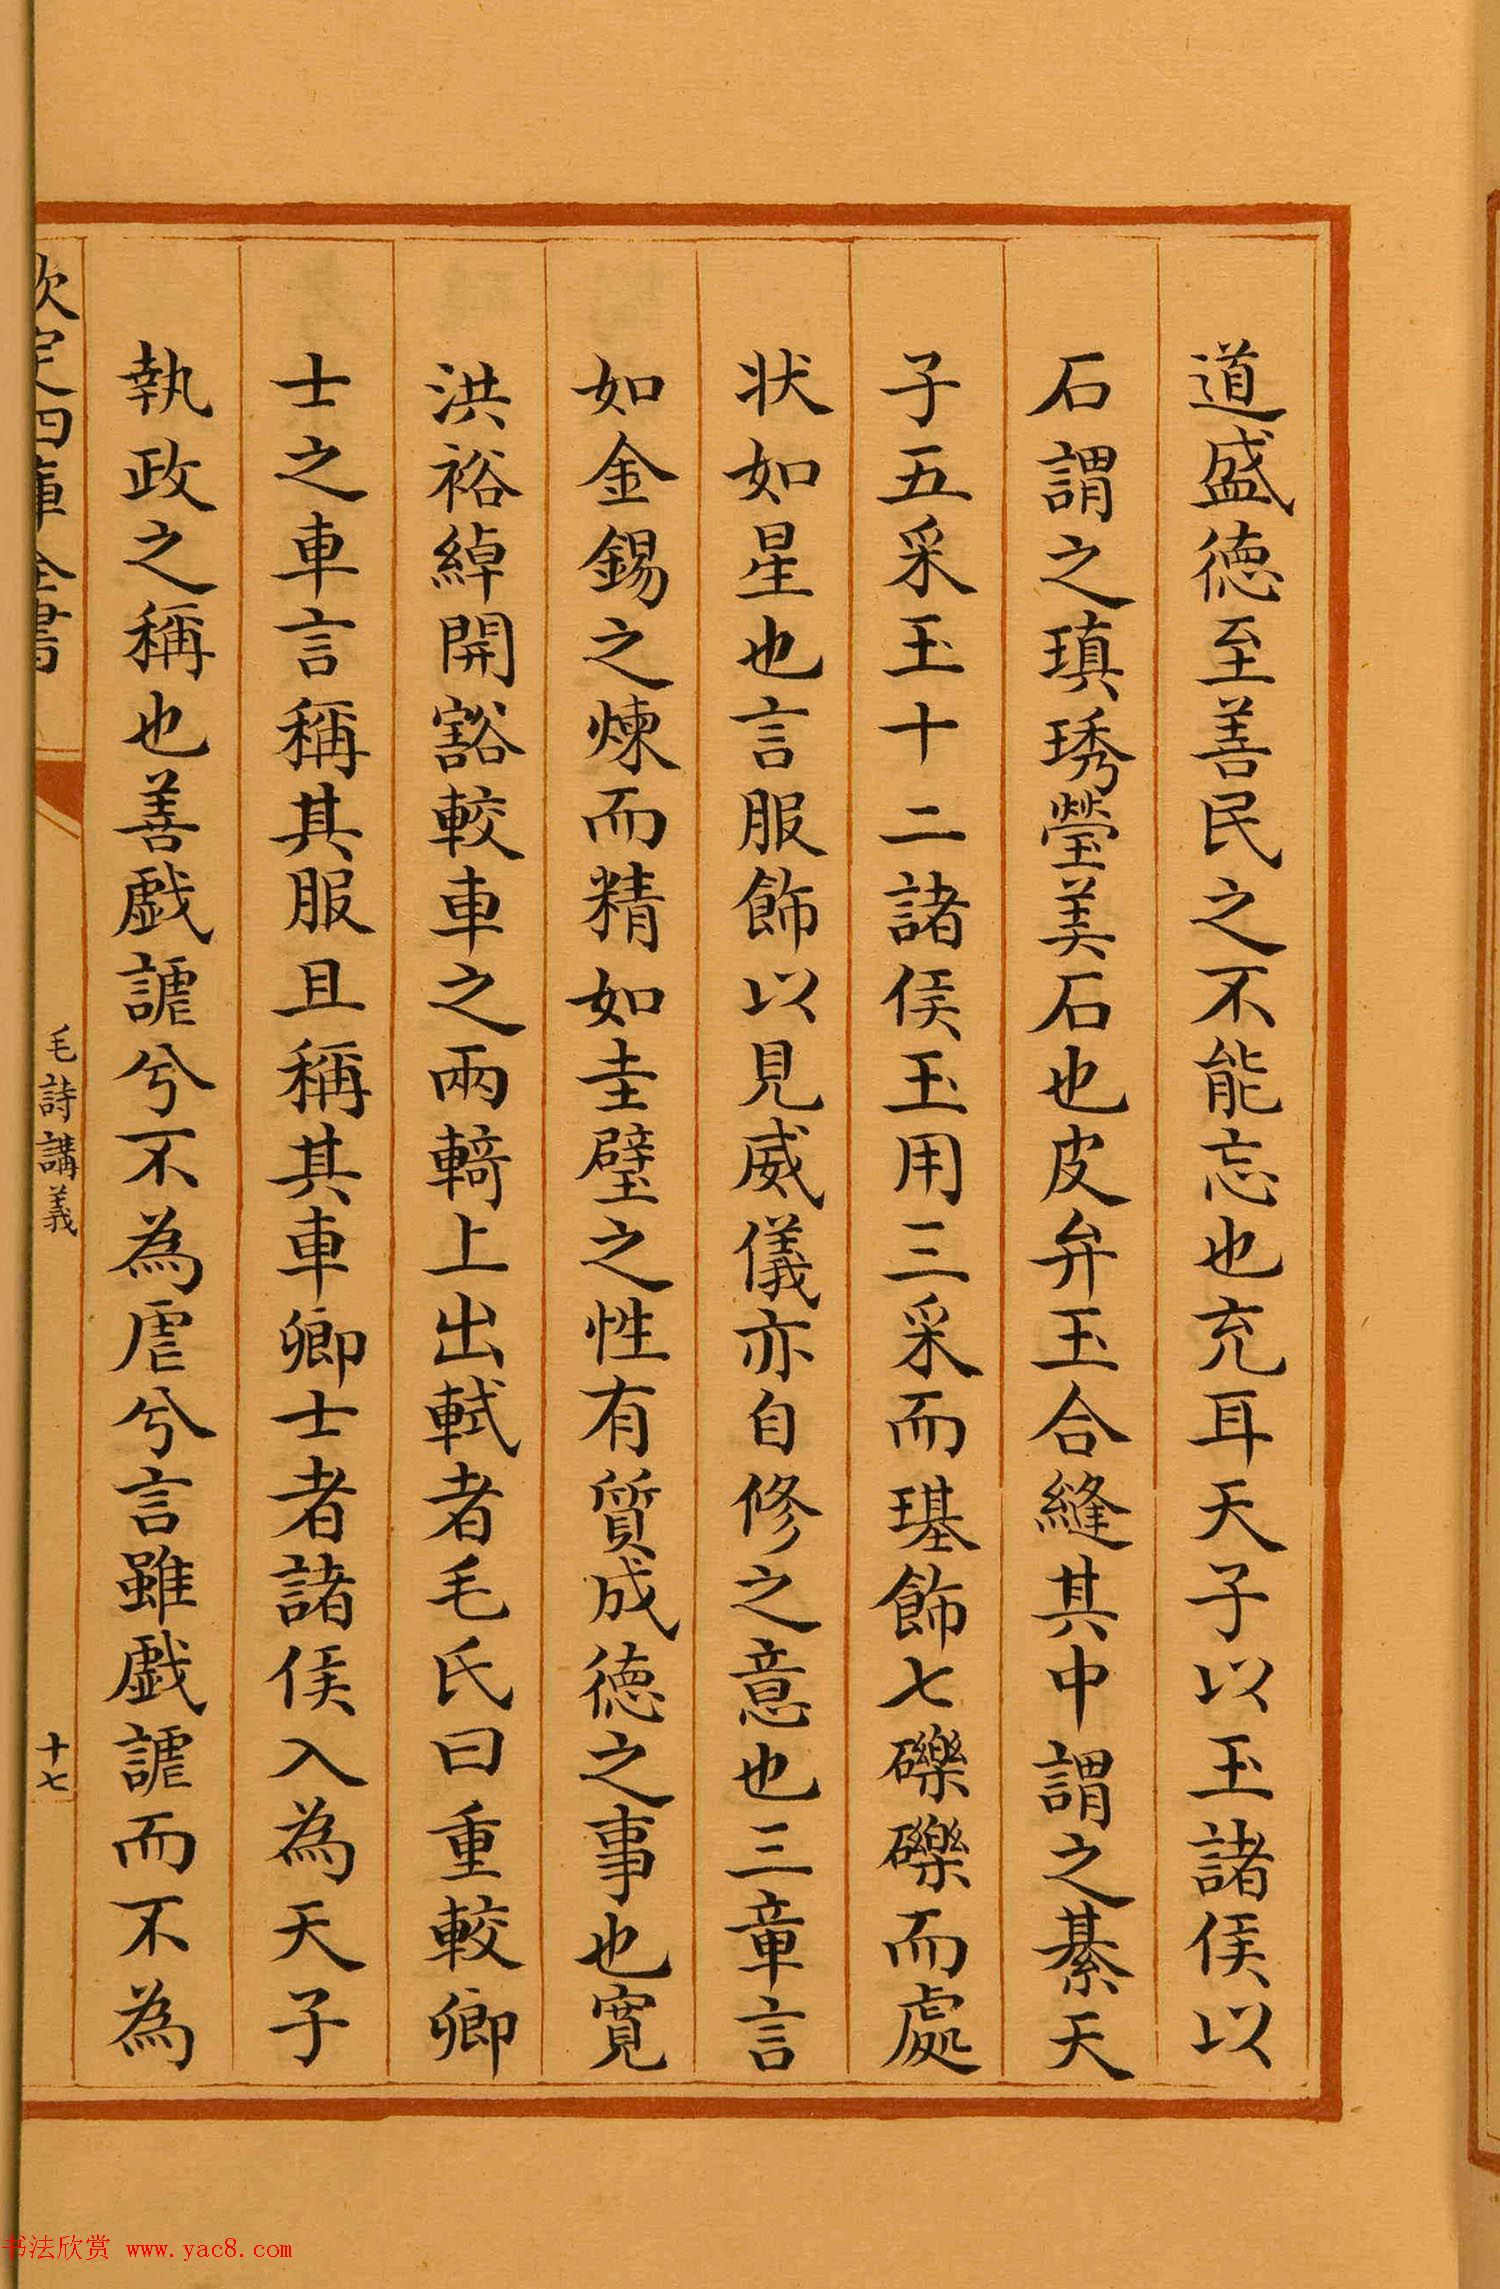 道盛徳至善民之不能忘也充耳天子以玉諸侯以
石謂之瑱琇瑩美石也皮弁玉合縫其中謂之綦天
子五采玉十二諸侯玉用三采而璂飾七礫礫而處
状如星也言服飾以見威儀亦自修之意也三章言
如金錫之煉而精如圭璧之性有質成徳之事也寛
洪裕綽開豁較車之兩輢上出軾者毛氏曰重較卿
士之車言稱其服且稱其車卿士者諸侯入為天子
執政之稱也善戯謔兮不為虐兮言雖戯謔而不為
欽定四庫全書
毛詩講義
十七
书法欣赏 www.yac8.com